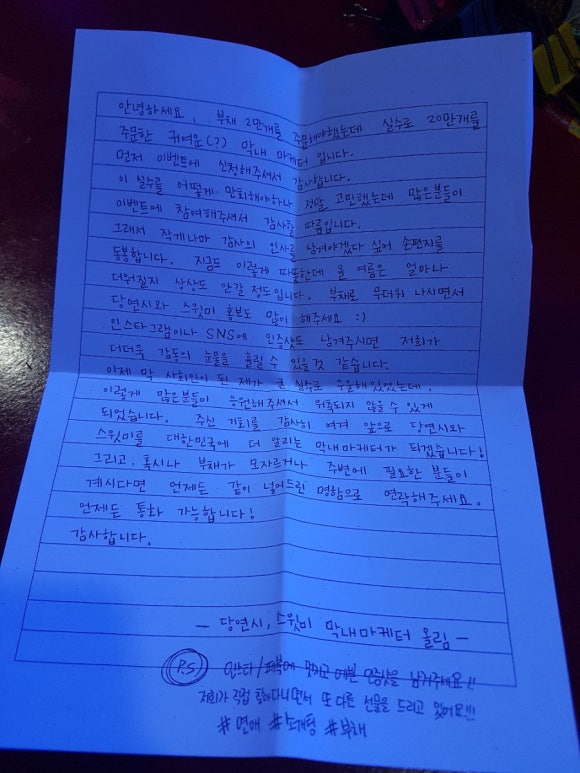 안녕하세요, 부채 2만개를 주문해야했는데 실수로 20만개를
주문한 귀여운(?) 막내 마케터 입니다.
먼저 이벤트에 신청해주셔서 감사합니다.
이 실수를 어떻게 만회해야하나 정말 고민했는데 많은분들이
이벤트에 참여해주셔서 감사할 따름입니다.
그래서 작게나마 감사의 인사를 남겨야겠다 싶어 손편지를
동봉합니다. 지금도 이렇게 따뜻한데 올 여름은 얼마나
더워질지 상상도 안갈 정도입니다. 부채로 무더위 나시면서
당연시와 스윗미 홍보도 많이 해주세요 :)
인스타그램이나 SNS에 인증샷도 남겨주시면 저희가
더더욱 감동의 눈물을 흘릴 수 있을것 같습니다.
이제 막 사회인이 된 제가 큰 실수로 우울해있었는데,
이렇게 많은분들이 응원해주셔서 위축되지 않을 수 있게
되었습니다. 주신 기회를 감사히 여겨 앞으로 당연시와
스윗미를 대한민국에 더 알리는 막내마케터가 되겠습니다!
그리고, 혹시나 부채가 모자르거나 주변에 필요한 분들이
계시다면 언제든 같이 넣어드린 명함으로 연락해주세요.
언제든 통화 가능합니다!
감사합니다.
- 당연시, 스윗미 막내마케터 올림 -
P.S 인스타/페북에 멋지고 예쁜 인증샷을 남겨주세요!!
저희가 직접 찾아다니면서 또 다른 선물을 드리고 있어요!!!
#연애 #소개팅 #부채